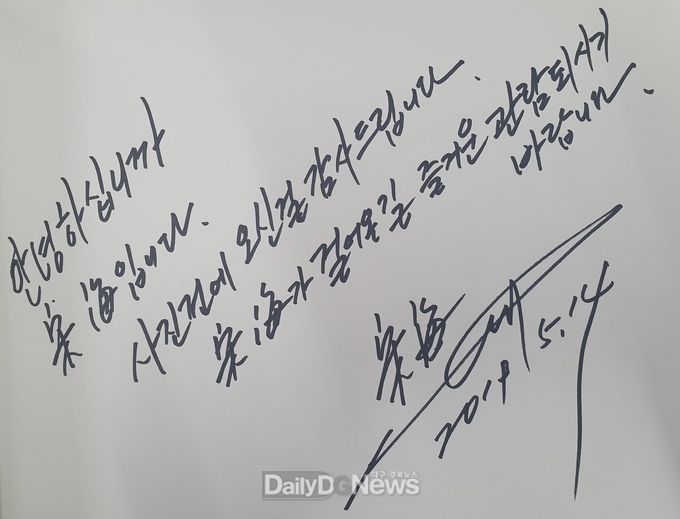 안녕하십니까
宋海입니다.
사진전에 오신걸 감사드립니다.
宋海가 걸어온 길 즐거운 관람되시기
바랍니다.
宋海
2019 5.14
대구·경북뉴스
DailyDGNews